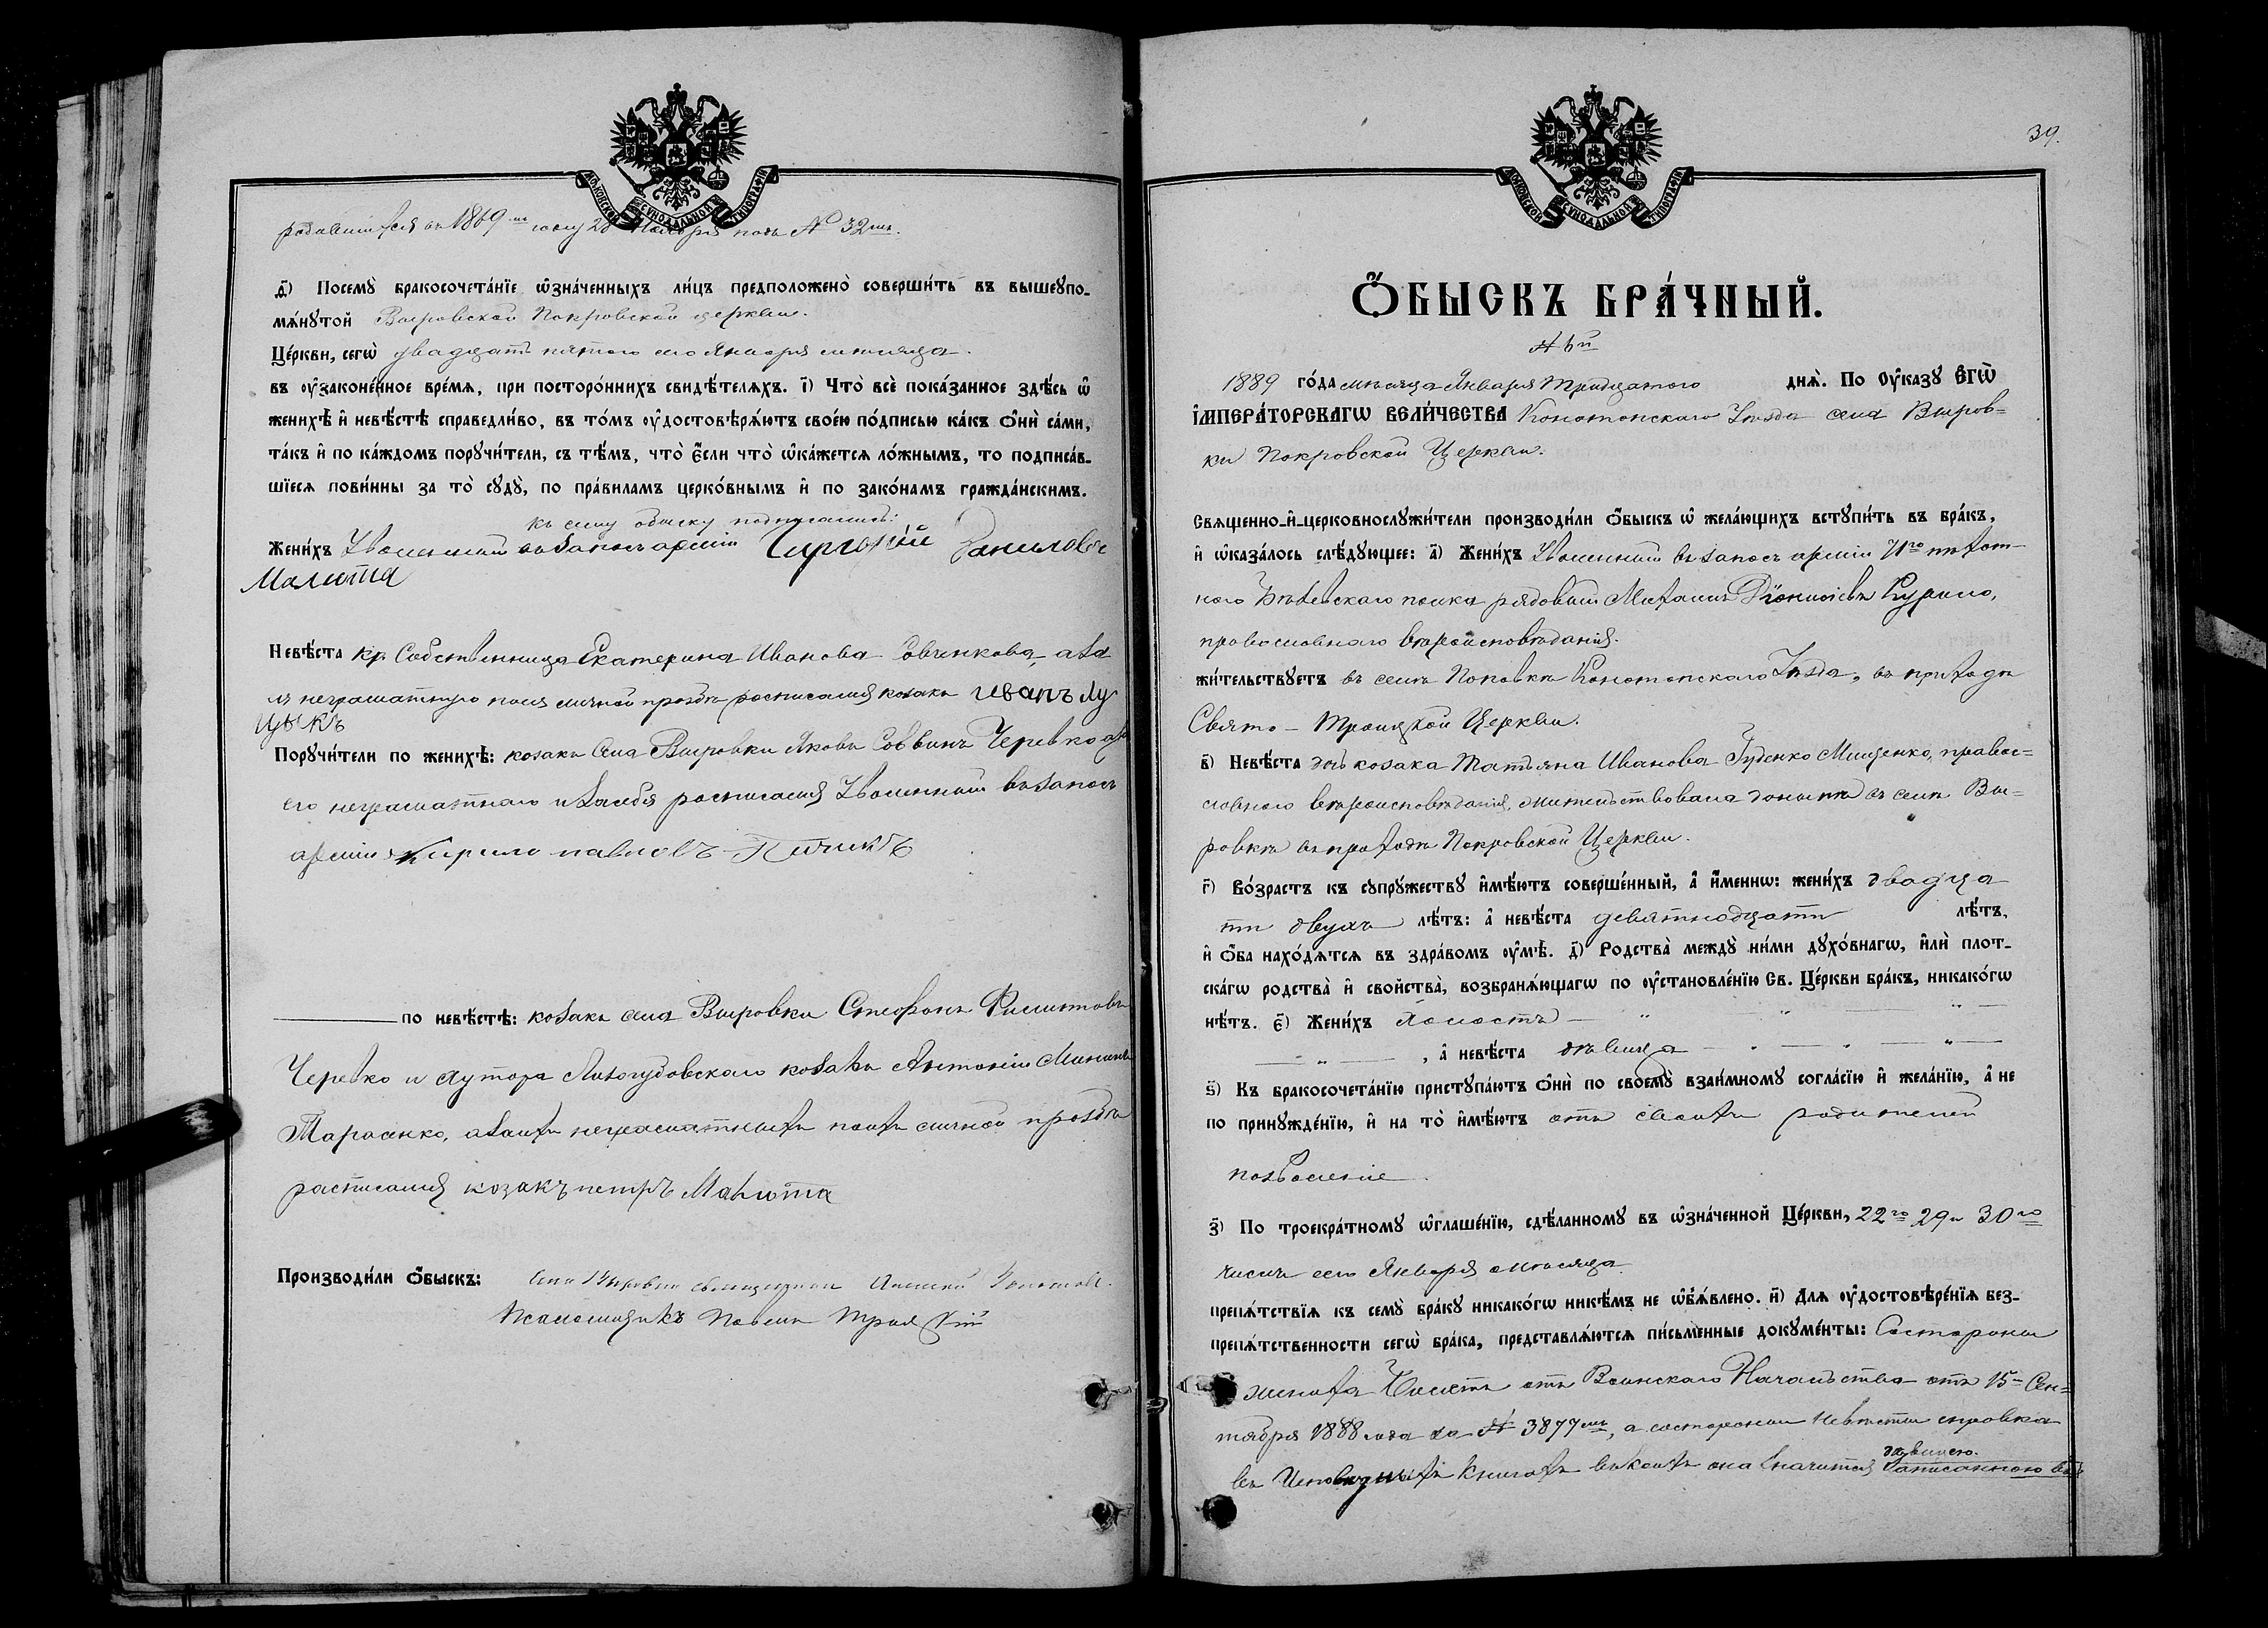 МОСКОВСКОЙ СѴНОДАЛЬНОЙ ТИПОГРАФІИ
въ 1869 году 28 Ноября подъ № 32мъ.
д҃і) Посемꙋ̀ бракосочета́нїе ѡ҆зна́ченныхъ ли́цъ предположено̀ соверши́ть въ вышеꙋпо-
мѧ́нꙋтой Выровской Покровской церкви.
Це́ркви, сегѡ̀ двадцать пятого сего Января месяца.
въ ᲂу҆законе́нное вре́мѧ, при посторо́ннихъ свидѣ́телѧхъ. і҃) Что̀ всѐ пока́занное здѣ́сь ѡ҆
женихѣ̀ и҆ невѣ́стѣ справедли́во, въ то́мъ ᲂу҆достовѣрѧ́ютъ свое́ю по́дписью ка́къ ѻ҆нѝ са́ми,
та́къ и҆ по ка́ждомъ порꙋчи́тели, съ тѣ́мъ, что̀ є҆́сли что̀ ѡ҆ка́жетсѧ ло́жнымъ, то подписа́в-
шїесѧ пови́нны за то̀ сꙋдꙋ̀, по пра́виламъ церко́внымъ и҆ по зако́намъ гражда́нскимъ.
къ сему обыску подписались:
Жени́хъ Уволенный въ запасъ арміи Данилович
Малюта
Невѣ́ста кр. Собственница Екатерина Иванова Совченкова, аза
нея неграматную поея личной прозбе росписался козакъ иванъ Лу
цыкъ
Порꙋчи́тели по женихѣ̀: козакъ села Выровки Яковъ Саввинъ Черевко аза
его неграматнаго изасебя росписался Уволенный въ запасъ
арміи Кирило павловъ
по невѣ́стѣ: козакъ села Выровки Стефанъ Филиповъ
Черевко и хутора Лизогубовского козакъ Антоній Мининъ
Тарасенко, азаихъ неграматныхъ поихъ личной прозбе
расписался козакъ петръ Малюта
Производи́ли ѻ҆́быскъ: Села Выровки священникъ Алексей
Псаломщикъ Павелъ
39.
МОСКОВСКОЙ СѴНОДАЛЬНОЙ ТИПОГРАФІИ
Ѻ҆́БЫСКЪ БРА́ЧНЫЙ.
№ 6й
1889 го́да месяца Января Тридцатого днѧ̀. По Оу҆ка́зꙋ Є҆ГѠ̀
І҆МПЕРА́ТОРСКАГѠ ВЕЛИ́ЧЕСТВА Конотопскаго Уезда села Выров=
ки Покровской Церкви.
Свѧщенно-и҆-церковнослꙋжи́тели производи́ли ѻ҆́быскъ ѡ҆ жела́ющихъ встꙋпи́ть въ бра́къ,
и҆ ѡ҆каза́лось слѣ́дꙋющее: а҃) Жени́хъ Уволенный въ запасъ арміи 71го пехот-
ного Белевскаго полка рядовый Михаилъ Діонисіевъ Курило,
православнаго вероисповеданія.
жи́тельствꙋетъ въ селе Поповке Конотопскаго Уезда, въ приходе
Свято-Троицкой Церкви.
в҃) Невѣ́ста дочь козака Татьяна Иванова Гуденко Мищенко, правос=
лавного вероисповеданія, жительствовала доныне въ селе Вы=
ровке въ приходе Покровской Церкви.
г҃) Во́зрастъ къ сꙋпрꙋ́жествꙋ и҆мѣ́ютъ соверше́нный, а҆ и҆́менно: жени́хъ двадца
ти двухъ лѣ́тъ: а҆ невѣ́ста девятнадцати лѣ́тъ,
и҆ ѻ҆́ба нахо́дѧтсѧ въ здра́вомъ ᲂу҆мѣ̀. д҃) Родства̀ междꙋ̀ ни́ми дꙋхо́внагѡ, и҆лѝ плот-
ска́гѡ родства̀ и҆ свойства̀, возбранѧ́ющагѡ по ᲂу҆становле́нїю Св. Це́ркви бра́къ, никако́гѡ
нѣ́тъ. є҃) Жени́хъ холостъ — „ „ — „ —
— „ — , а҆ невѣ́ста девица — „ — „ — „ —
ѕ҃) Къ бракосочета́нїю пристꙋпа́ютъ ѻ҆нѝ по своемꙋ̀ взаи́мномꙋ согла́сїю и҆ жела́нїю, а҆ не
по принꙋжде́нїю, и҆ на то̀ и҆мѣ́ютъ отъ своихъ родителей
позволеніе.
з҃) По троекра́тномꙋ ѡ҆глаше́нїю, сдѣ́ланномꙋ въ ѡ҆зна́ченной Це́ркви, 22го 29и 30го
чиселъ сего Января месяца
препѧ́тствїѧ къ семꙋ̀ бра́кꙋ никако́гѡ никѣ́мъ не ѡ҆б̾ѧ́влено. и҃) Длѧ ᲂу҆достовѣре́нїѧ без-
препѧ́тственности сегѡ̀ бра́ка, представлѧ́ютсѧ пи́сьменные докꙋме́нты: Состороны
жениха билетъ отъ Воинскаго Начальства отъ 15 Сен=
тября 1888 года за № 3877мъ, а состороны Невесты справка
девицею.
въ Исповедныхъ Книгахъ въ коихъ она значится записанною въ